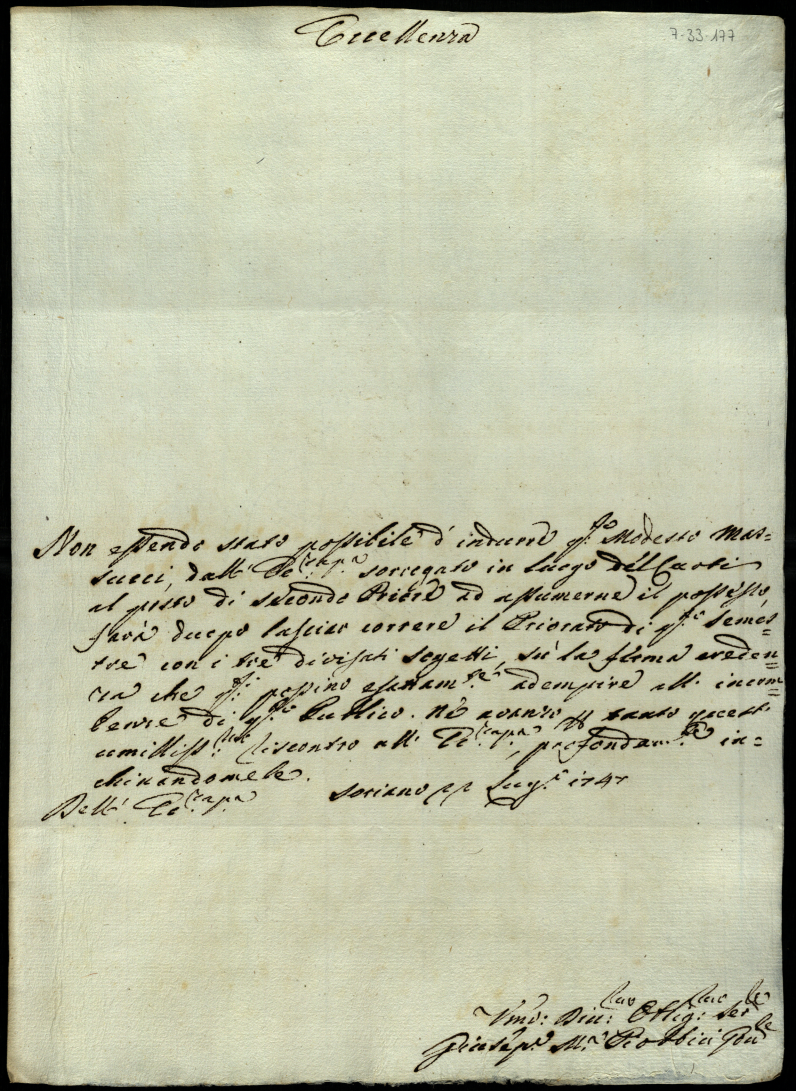 Eccellenza
7-33-177
Non essendo stato possibile d'indurre q.sto Modesto Mas=
succi, dall' Ec.za V.ra sorrogato in luogo del Carbi
al posto di secondo Priore ad assumerne il possesso,
farà duopo lasciar correre il Priorato di q.sto Semes=
tre con i tre divisati sogetti, sù la ferma creden=
za che q.sti possino esattam.te adempire all' incom=
benze di q.sto Publico. Ne avanzo per tanto
umiliss.mo riscontro all' Ec.za V.ra, profondam.te in=
chinandomele.
Dell' Ec.za V.ra Soriano Lug.o 1747
Umo: Div: Oblig: Ser.
Giusep.e M.a Gou.re